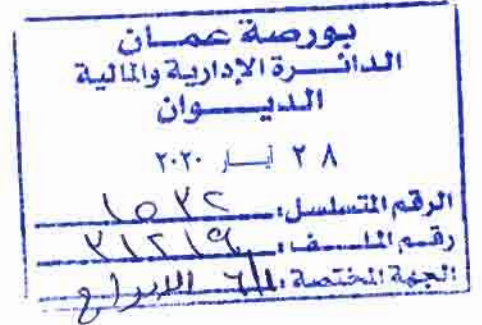 بورصة عمان
الدائرة الإدارية والمالية
الديوان
٢٨ أيار ٢٠٢٠
الرقم المتسلسل:
رقم الملف: ٣١٢١٩
الجهة المختصة: